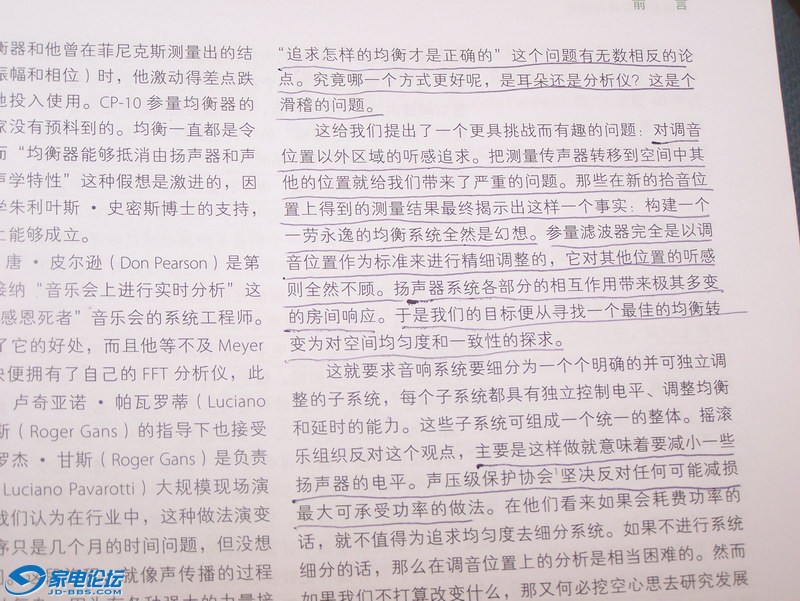 前 言
衡器和他曾在菲尼克斯测量出的结
振幅和相位）时，他激动得差点跌
地投入使用。CP-10 参量均衡器的
家没有预料到的。均衡一直都是令
而“均衡器能够抵消由扬声器和声
声学特性”这种假想是激进的，因
学朱利叶斯·史密斯博士的支持，
上能够成立。
唐·皮尔逊（Don Pearson）是第
接纳“音乐会上进行实时分析”这
“感恩死者”音乐会的系统工程师。
了它的好处，而且他等不及 Meyer
快便拥有了自己的 FFT 分析仪，此
卢奇亚诺·帕瓦罗蒂（Luciano
斯（Roger Gans）的指导下也接受
罗杰·甘斯（Roger Gans）是负责
Luciano Pavarotti）大规模现场演
我们认为在行业中，这种做法演变
序只是几个月的时间问题，但没想
就像声传播的过程
“追求怎样的均衡才是正确的”这个问题有无数相反的论
点。究竟哪一个方式更好呢，是耳朵还是分析仪？这是个
滑稽的问题。
这给我们提出了一个更具挑战而有趣的问题：对调音
位置以外区域的听感追求。把测量传声器转移到空间中其
他的位置就给我们带来了严重的问题。那些在新的拾音位
置上得到的测量结果最终揭示出这样一个事实：构建一个
一劳永逸的均衡系统全然是幻想。参量滤波器完全是以调
音位置作为标准来进行精细调整的，它对其他位置的听感
则全然不顾。扬声器系统各部分的相互作用带来极其多变
的房间响应。于是我们的目标便从寻找一个最佳的均衡转
变为对空间均匀度和一致性的探求。
这就要求音响系统要细分为一个个明确的并可独立调
整的子系统，每个子系统都具有独立控制电平、调整均衡
和延时的能力。这些子系统可组成一个统一的整体。摇滚
乐组织反对这个观点，主要是这样做就意味着要减小一些
扬声器的电平。声压级保护协会¹坚决反对任何可能减损
最大可承受功率的做法。在他们看来如果会耗费功率的
话，就不值得为追求均匀度去细分系统。如果不进行系统
细分的话，那么在调音位置上的分析是相当困难的。然而
如果我们不打算改变什么，那又何必挖空心思去研究发展
家电论坛
JD-BBS.COM